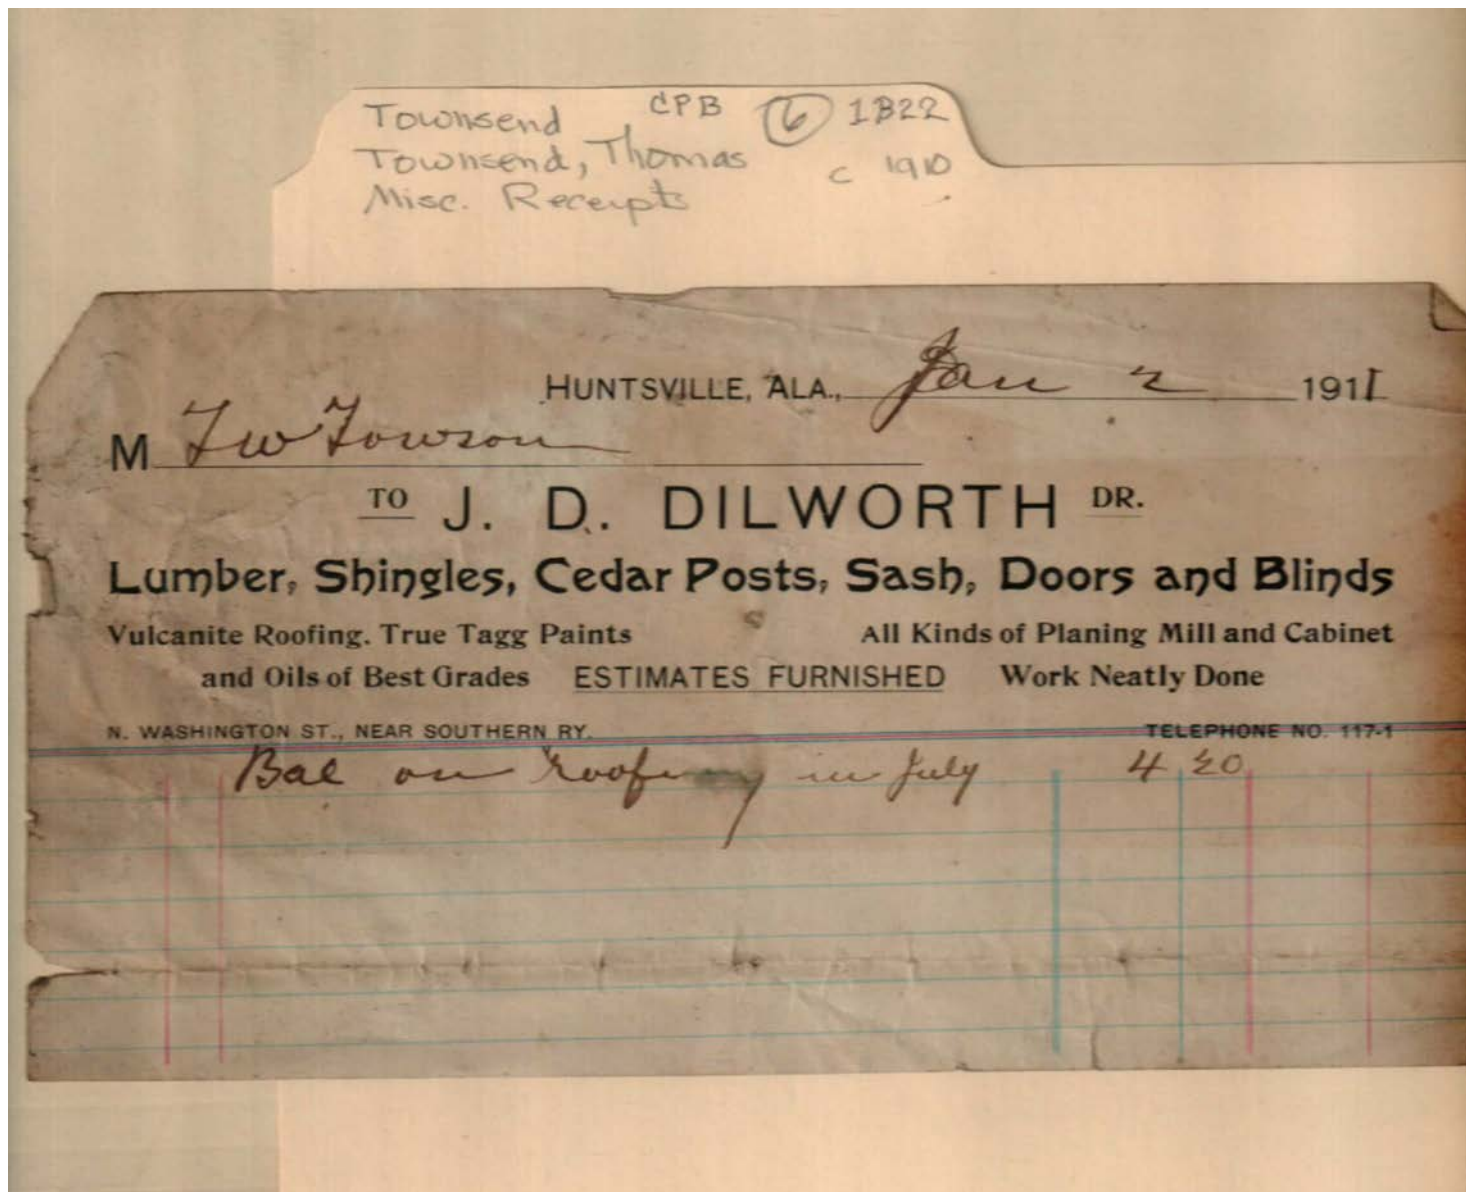 Townsend CPB 6 1B22
Townsend, Thomas c 1910
Misc. Receipts
HUNTSVILLE, ALA., Jan 2 1911
M T W Towson
TO J. D. DILWORTH DR.
Lumber, Shingles, Cedar Posts, Sash, Doors and Blinds
Vulcanite Roofing. True Tagg Paints All Kinds of Planing Mill and Cabinet
and Oils of Best Grades ESTIMATES FURNISHED Work Neatly Done
N. WASHINGTON ST., NEAR SOUTHERN RY. TELEPHONE NO. 117-1
Bal on roofing in July 4 20